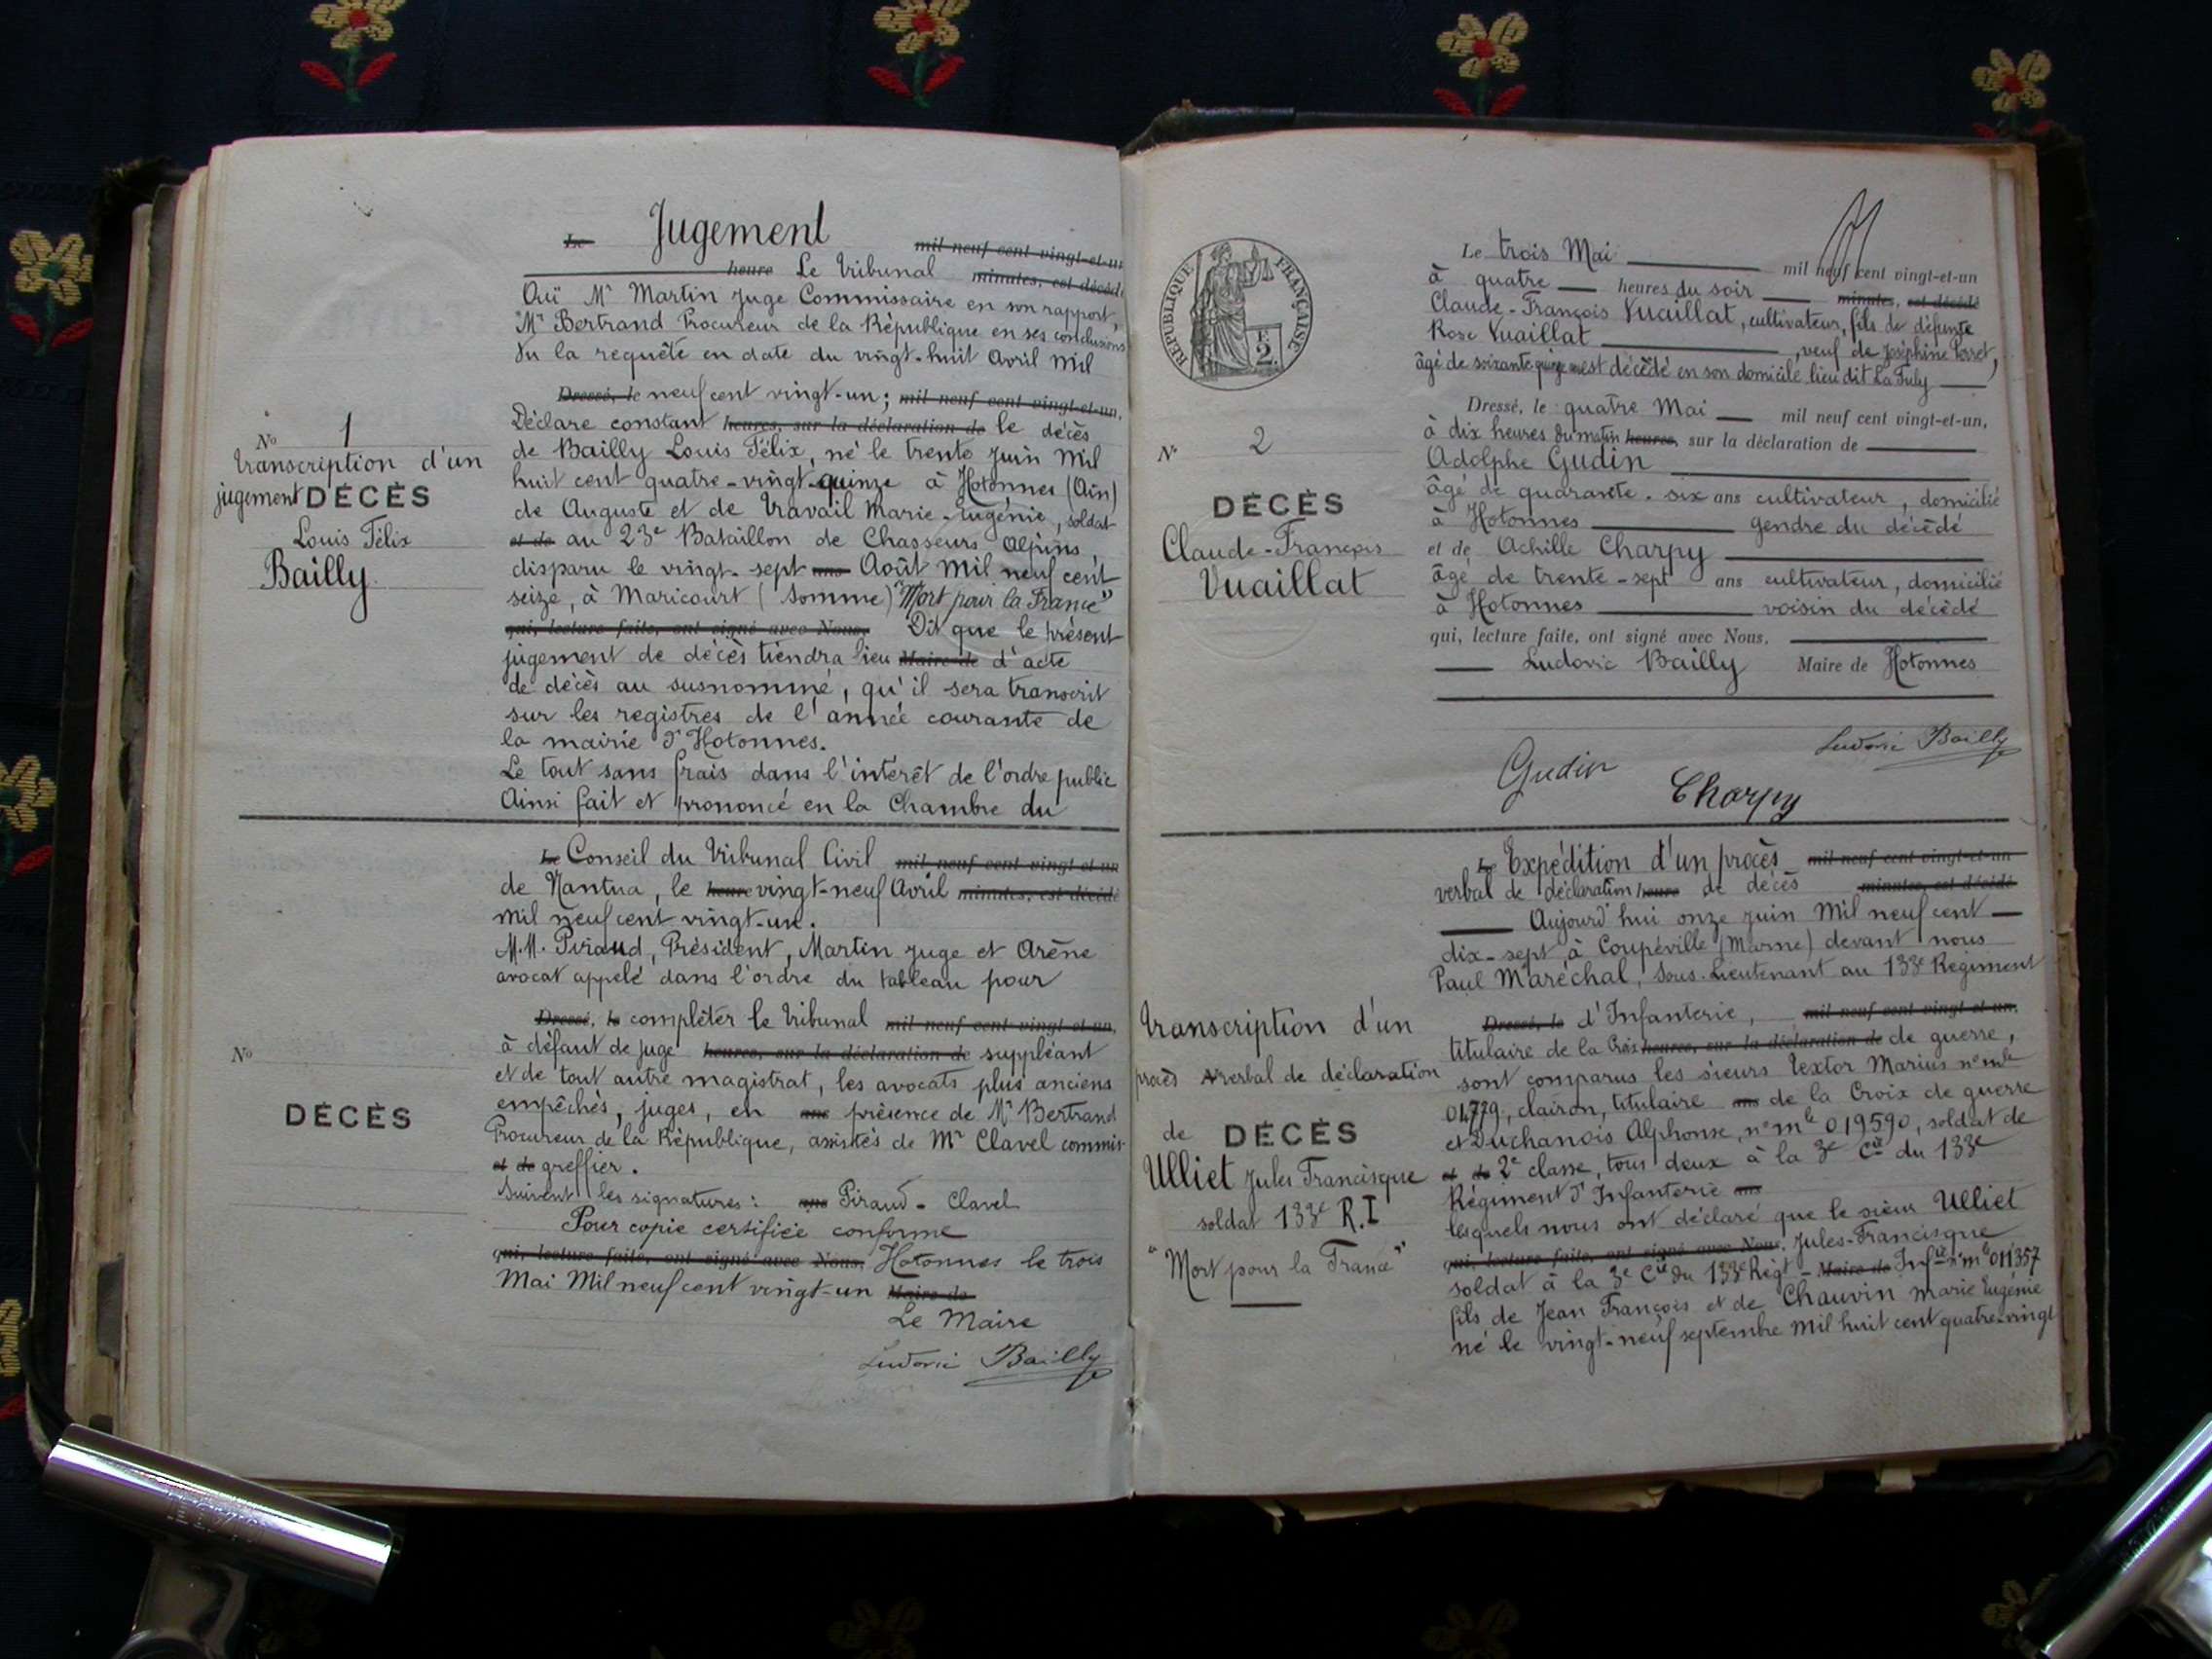 Jugement
Le mil neuf cent vingt-et-un
heure Le Tribunal minutes, est décédé
Ouï Mr Martin Juge Commissaire en son rapport,
Mr Bertrand Procureur de la République en ses conclusions
Vu la requête en date du vingt-huit Avril Mil
Dressé, le neuf cent vingt-un; mil neuf cent vingt-et-un,
Déclare constant heures, sur la déclaration de le décès
de Bailly Louis Félix, né le trente Juin Mil
huit cent quatre-vingt-quinze à Hotonnes (Ain)
de Auguste et de Travail Marie-Eugénie, soldat
et de au 23e Bataillon de Chasseurs Alpins,
disparu le vingt-sept ans Août Mil neuf cent
seize, à Maricourt (Somme) "Mort pour la France"
qui, lecture faite, ont signé avec Nous, Dit que le présent
jugement de décès tiendra lieu Maire de d'acte
de décès au susnommé, qu'il sera transcrit
sur les registres de l'année courante de
la mairie d'Hotonnes.
Le tout sans frais dans l'intérêt de l'ordre public
Ainsi fait et prononcé en la Chambre du
No 1
Transcription d'un
jugement DÉCÈS
Louis Félix
Bailly
Le Conseil du Tribunal Civil mil neuf cent vingt et un
de Nantua, le heure vingt-neuf Avril minutes, est décédé
Mil neuf cent vingt-un.
M.M. Piraud, Président, Martin Juge et Arène
avocat appelé dans l'ordre du tableau pour
Dressé, le compléter le Tribunal mil neuf cent vingt et un,
à défaut de juge heures, sur la déclaration de suppléant
et de tout autre magistrat, les avocats plus anciens
empêchés, juges, en ans présence de Mr Bertrand
Procureur de la République, assistés de Mr Clavel commis-
et de greffier.
Suivent les signatures: ans Piraud - Clavel
Pour copie certifiée conforme
qui, lecture faite, ont signé avec Nous, Hotonnes le trois
Mai Mil neuf cent vingt-un Maire de
Le Maire
Ludovic Bailly
No
DÉCÈS
RÉPUBLIQUE FRANÇAISE
F.
2.
Le trois Mai mil neuf cent vingt-et-un
à quatre heures du soir minutes, est décédé
Claude-François Vuaillat, cultivateur, fils de défunte
Rose Vuaillat, veuf de Joséphine Perret,
âgé de soixante quinze ans est décédé en son domicile lieu dit La Fuly
Dressé, le quatre Mai mil neuf cent vingt-et-un,
à dix heures du matin heures, sur la déclaration de
Adolphe Gudin
âgé de quarante-six ans cultivateur, domicilié
à Hotonnes gendre du décédé
et de Achille Charpy
âgé de trente-sept ans cultivateur, domicilié
à Hotonnes voisin du décédé
qui, lecture faite, ont signé avec Nous,
Ludovic Bailly Maire de Hotonnes
Gudin Charpy Ludovic Bailly
No 2
DÉCÈS
Claude-François
Vuaillat
Le Expédition d'un procès mil neuf cent vingt-et-un
verbal de déclaration heure de décès minutes, est décédé
Aujourd'hui onze Juin Mil neuf cent
dix-sept, à Coupéville (Marne) devant nous
Paul Maréchal, Sous-Lieutenant au 133e Régiment
Dressé, le d'Infanterie, mil neuf cent vingt et un,
titulaire de la Croix heures, sur la déclaration de de guerre,
sont comparus les sieurs Textor Marius no mle
04779, clairon, titulaire ans de la Croix de guerre
et Duchanois Alphonse, no mle 019590, soldat de
et de 2e classe, tous deux à la 3e Cie du 133e
Régiment d'Infanterie ans
lesquels nous ont déclaré que le sieur Ulliet
qui, lecture faite, ont signé avec Nous, Jules-Francisque
soldat à la 3e Cie du 133e Régt - Maire de Infie no mle 011357
fils de Jean François et de Chauvin Marie Eugénie
né le vingt-neuf septembre Mil huit cent quatre-vingt
Transcription d'un
procès verbal de déclaration
de DÉCÈS
Ulliet Jules Francisque
soldat 133e R.I
"Mort pour la France"